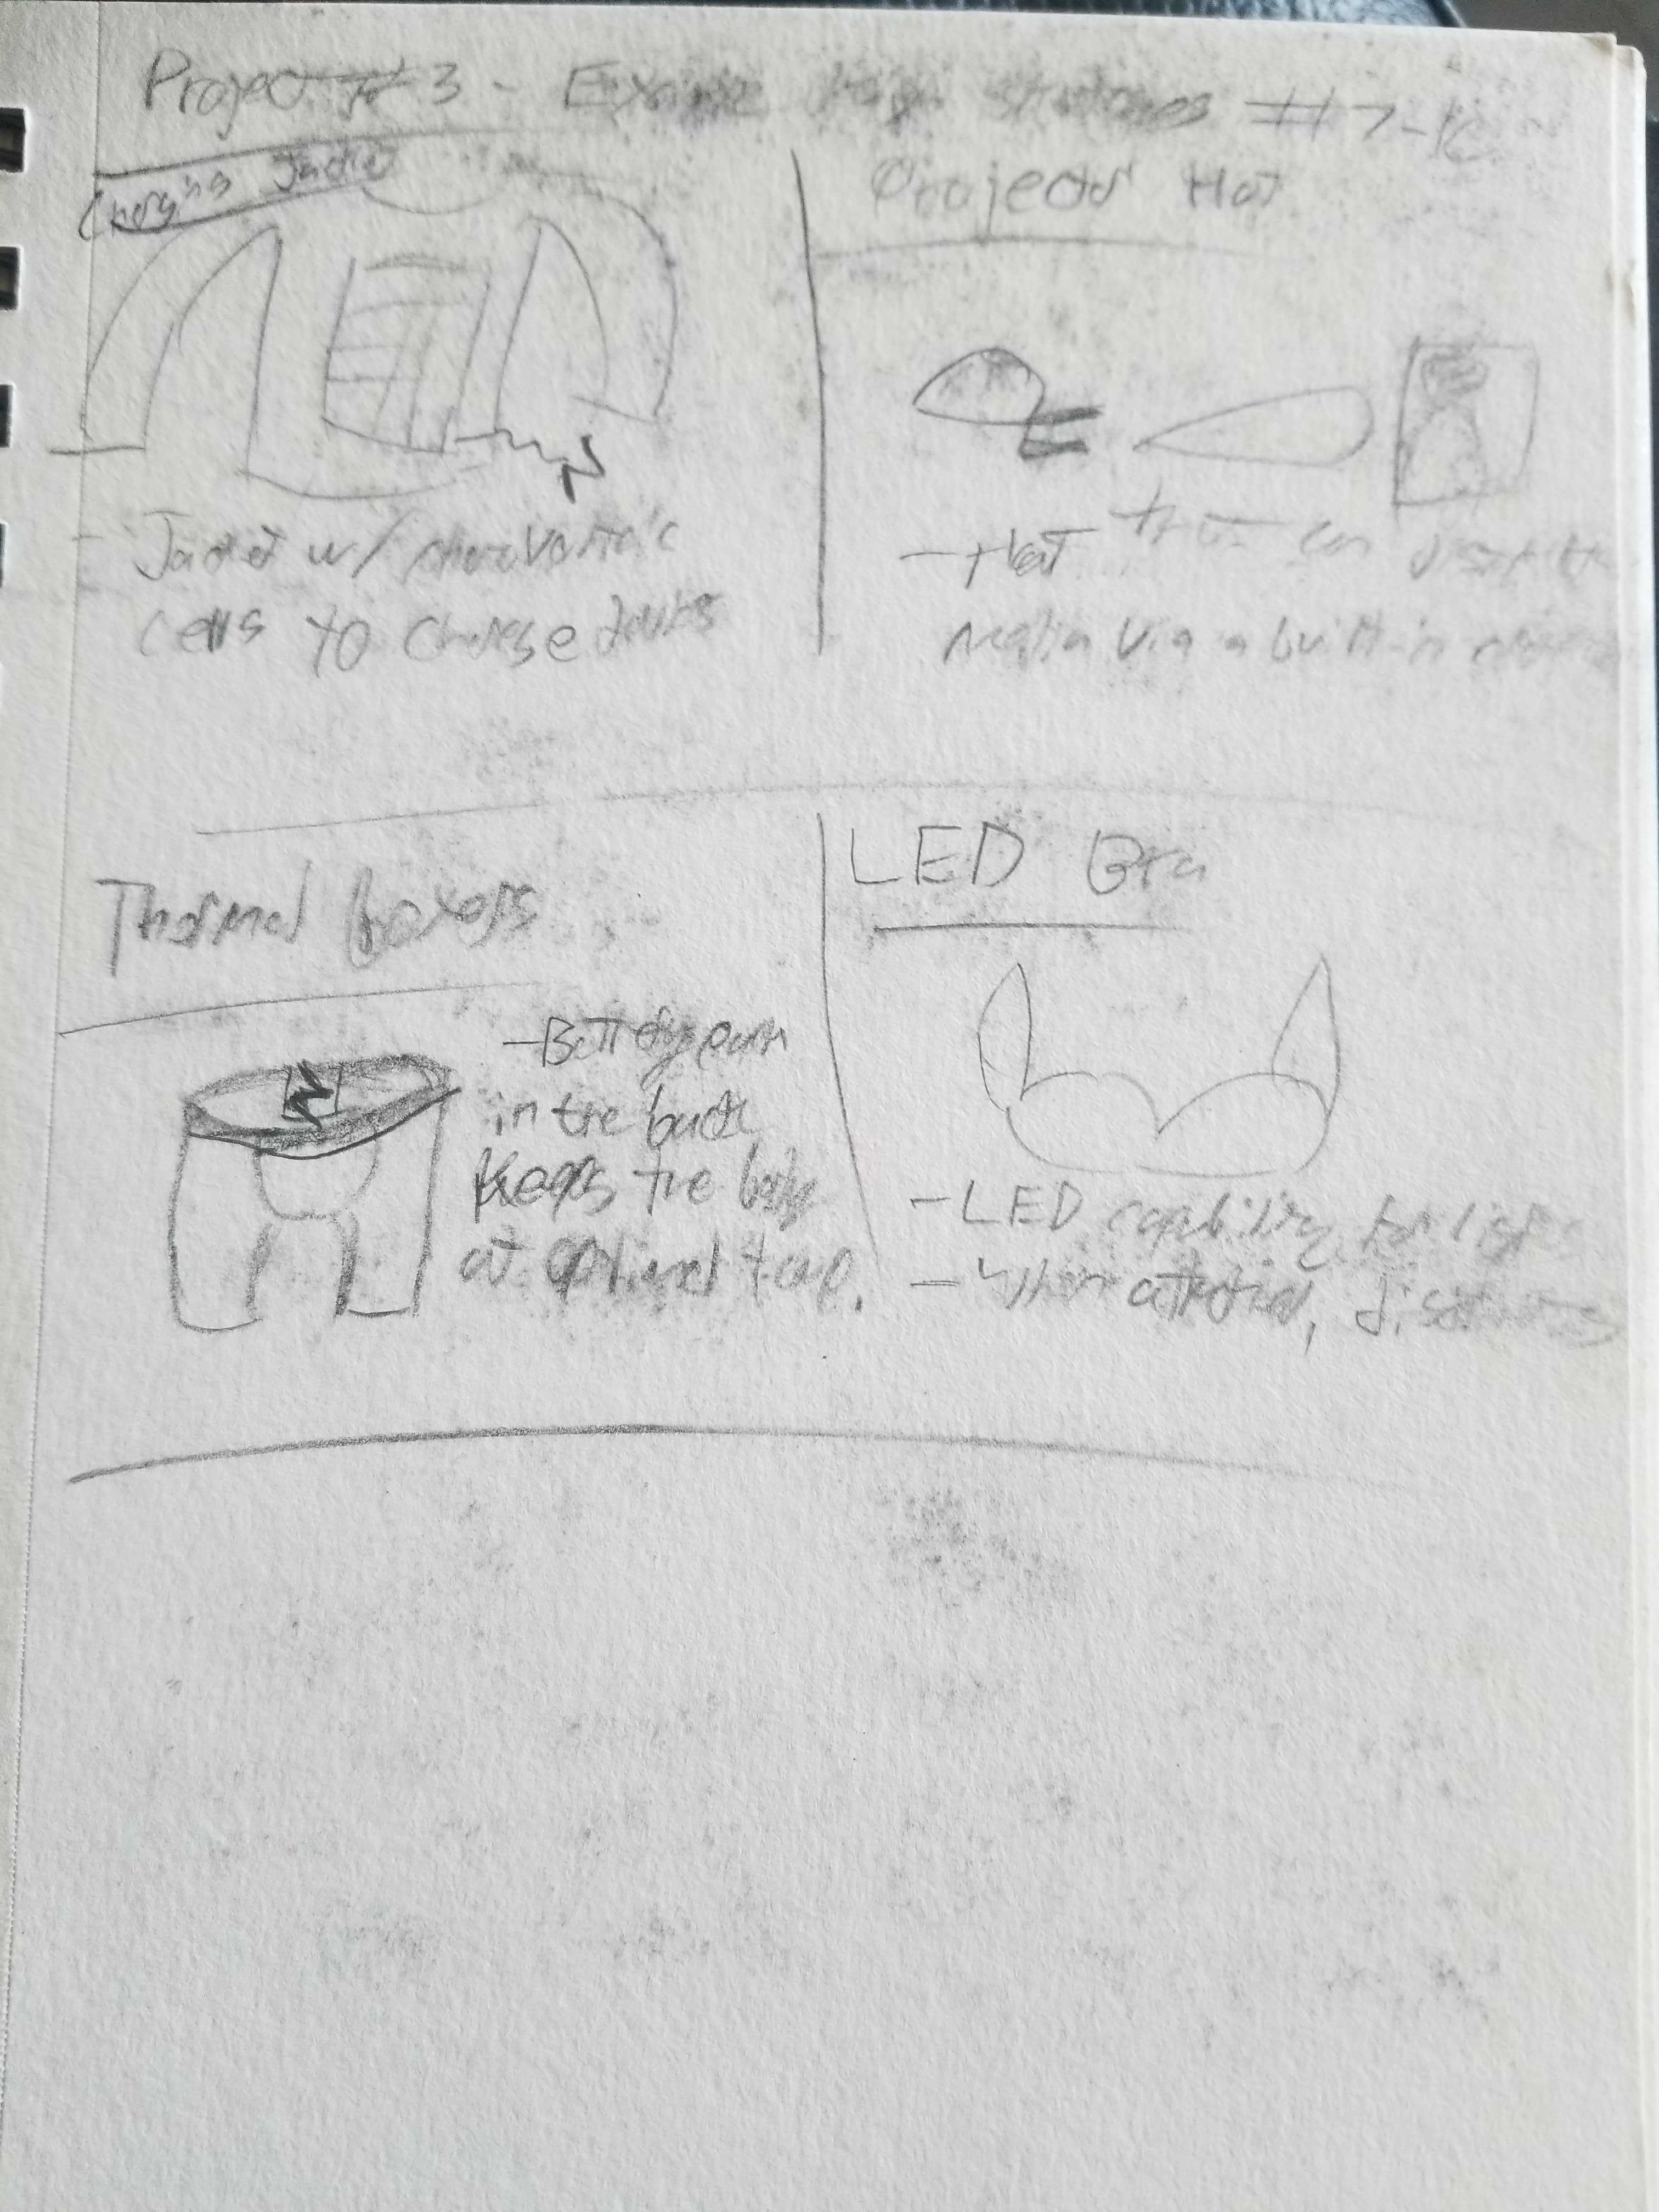 Project #3 - #7-10
Charging Jacket
Jacket w/ photovoltaic
cells to charge
Projector Hat
- Hat that can
media via a built-in
Thermal Boxers
- Battery pack
in the back
keeps the body
at optimal temp.
LED Bra
- LED capability for
- When attached,